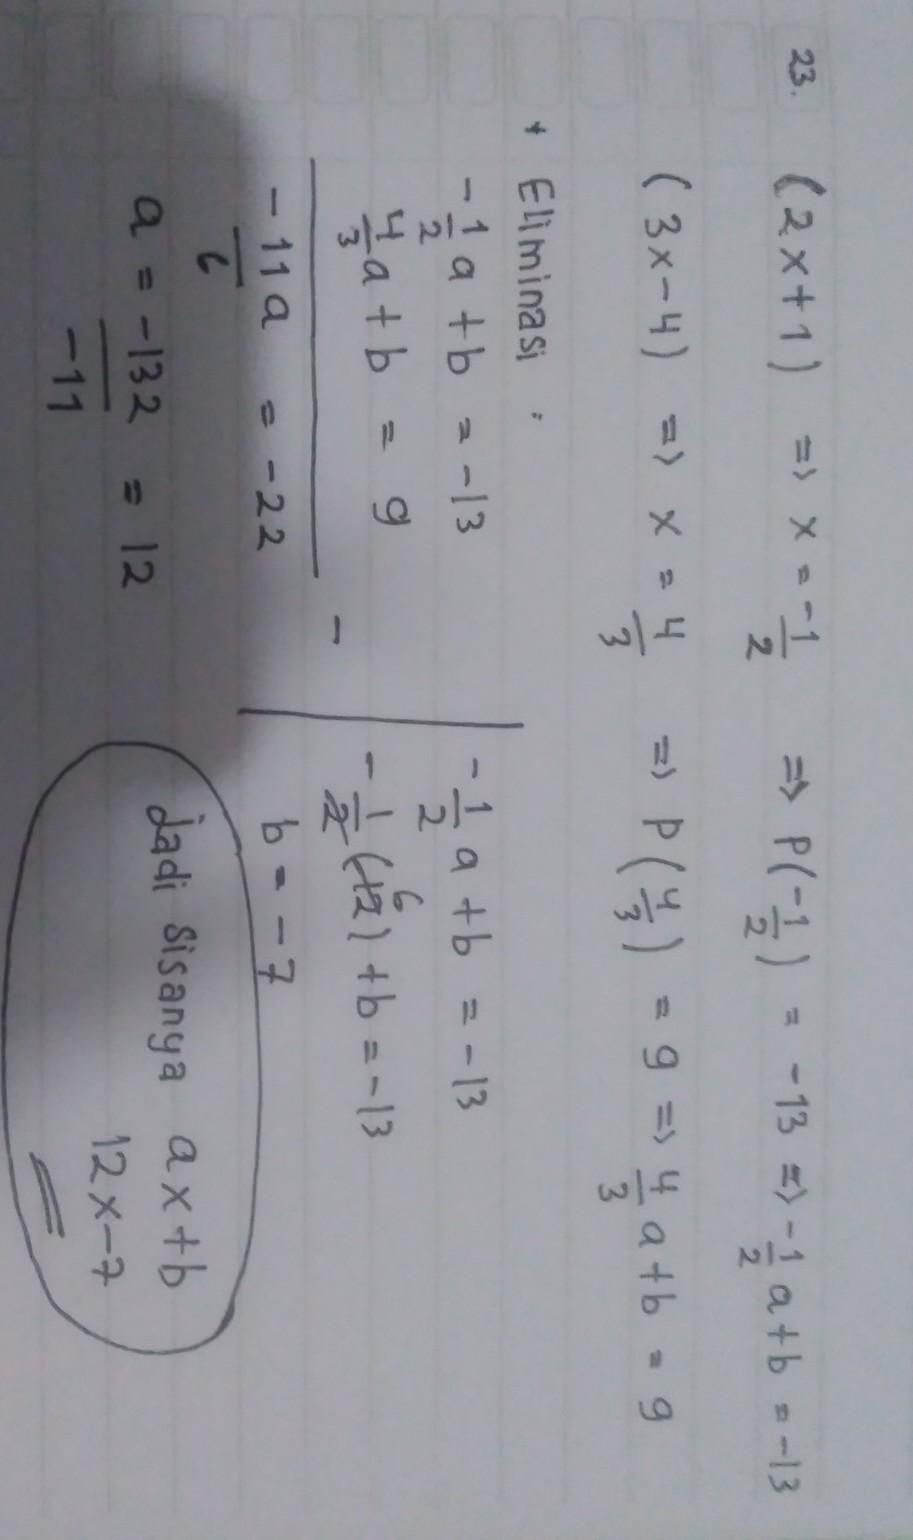 23. (2x+1) => x = -1/2 => P(-1/2) = -13 => -1/2 a + b = -13
(3x-4) => x = 4/3 => P(4/3) = 9 => 4/3 a + b = 9
* Eliminasi :
-1/2 a + b = -13
4/3 a + b = 9
-
-11a/6 = -22
a = -132/-11 = 12
-1/2 a + b = -13
-1/2 (12) 6 + b = -13
b = -7
Jadi sisanya ax+b
12x-7